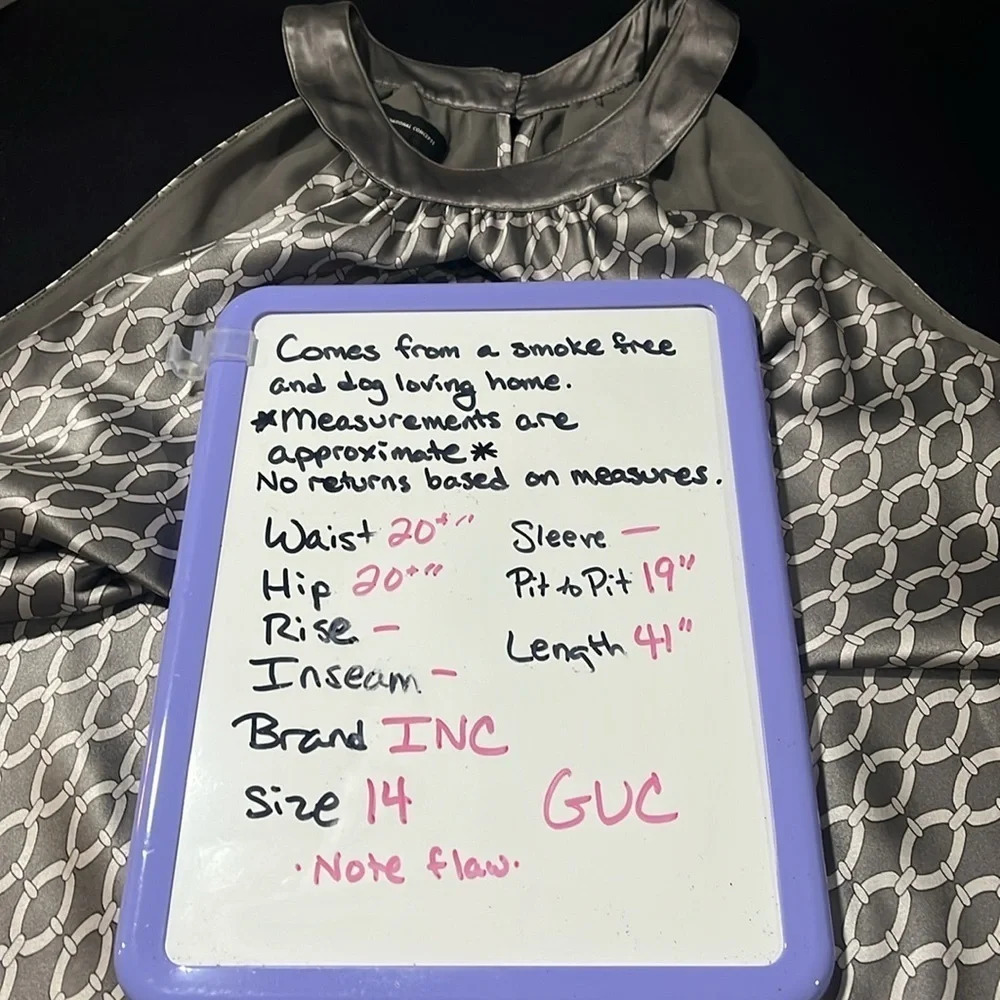 NATIONAL CONCEPTS
Comes from a smoke free
and dog loving home.
*Measurements are
approximate*
No returns based on measures.
Waist 20+"
Sleeve -
Hip 20+"
Pit to Pit 19"
Rise -
Length 41"
Inseam -
Brand INC
Size 14
GUC
• Note flaw •